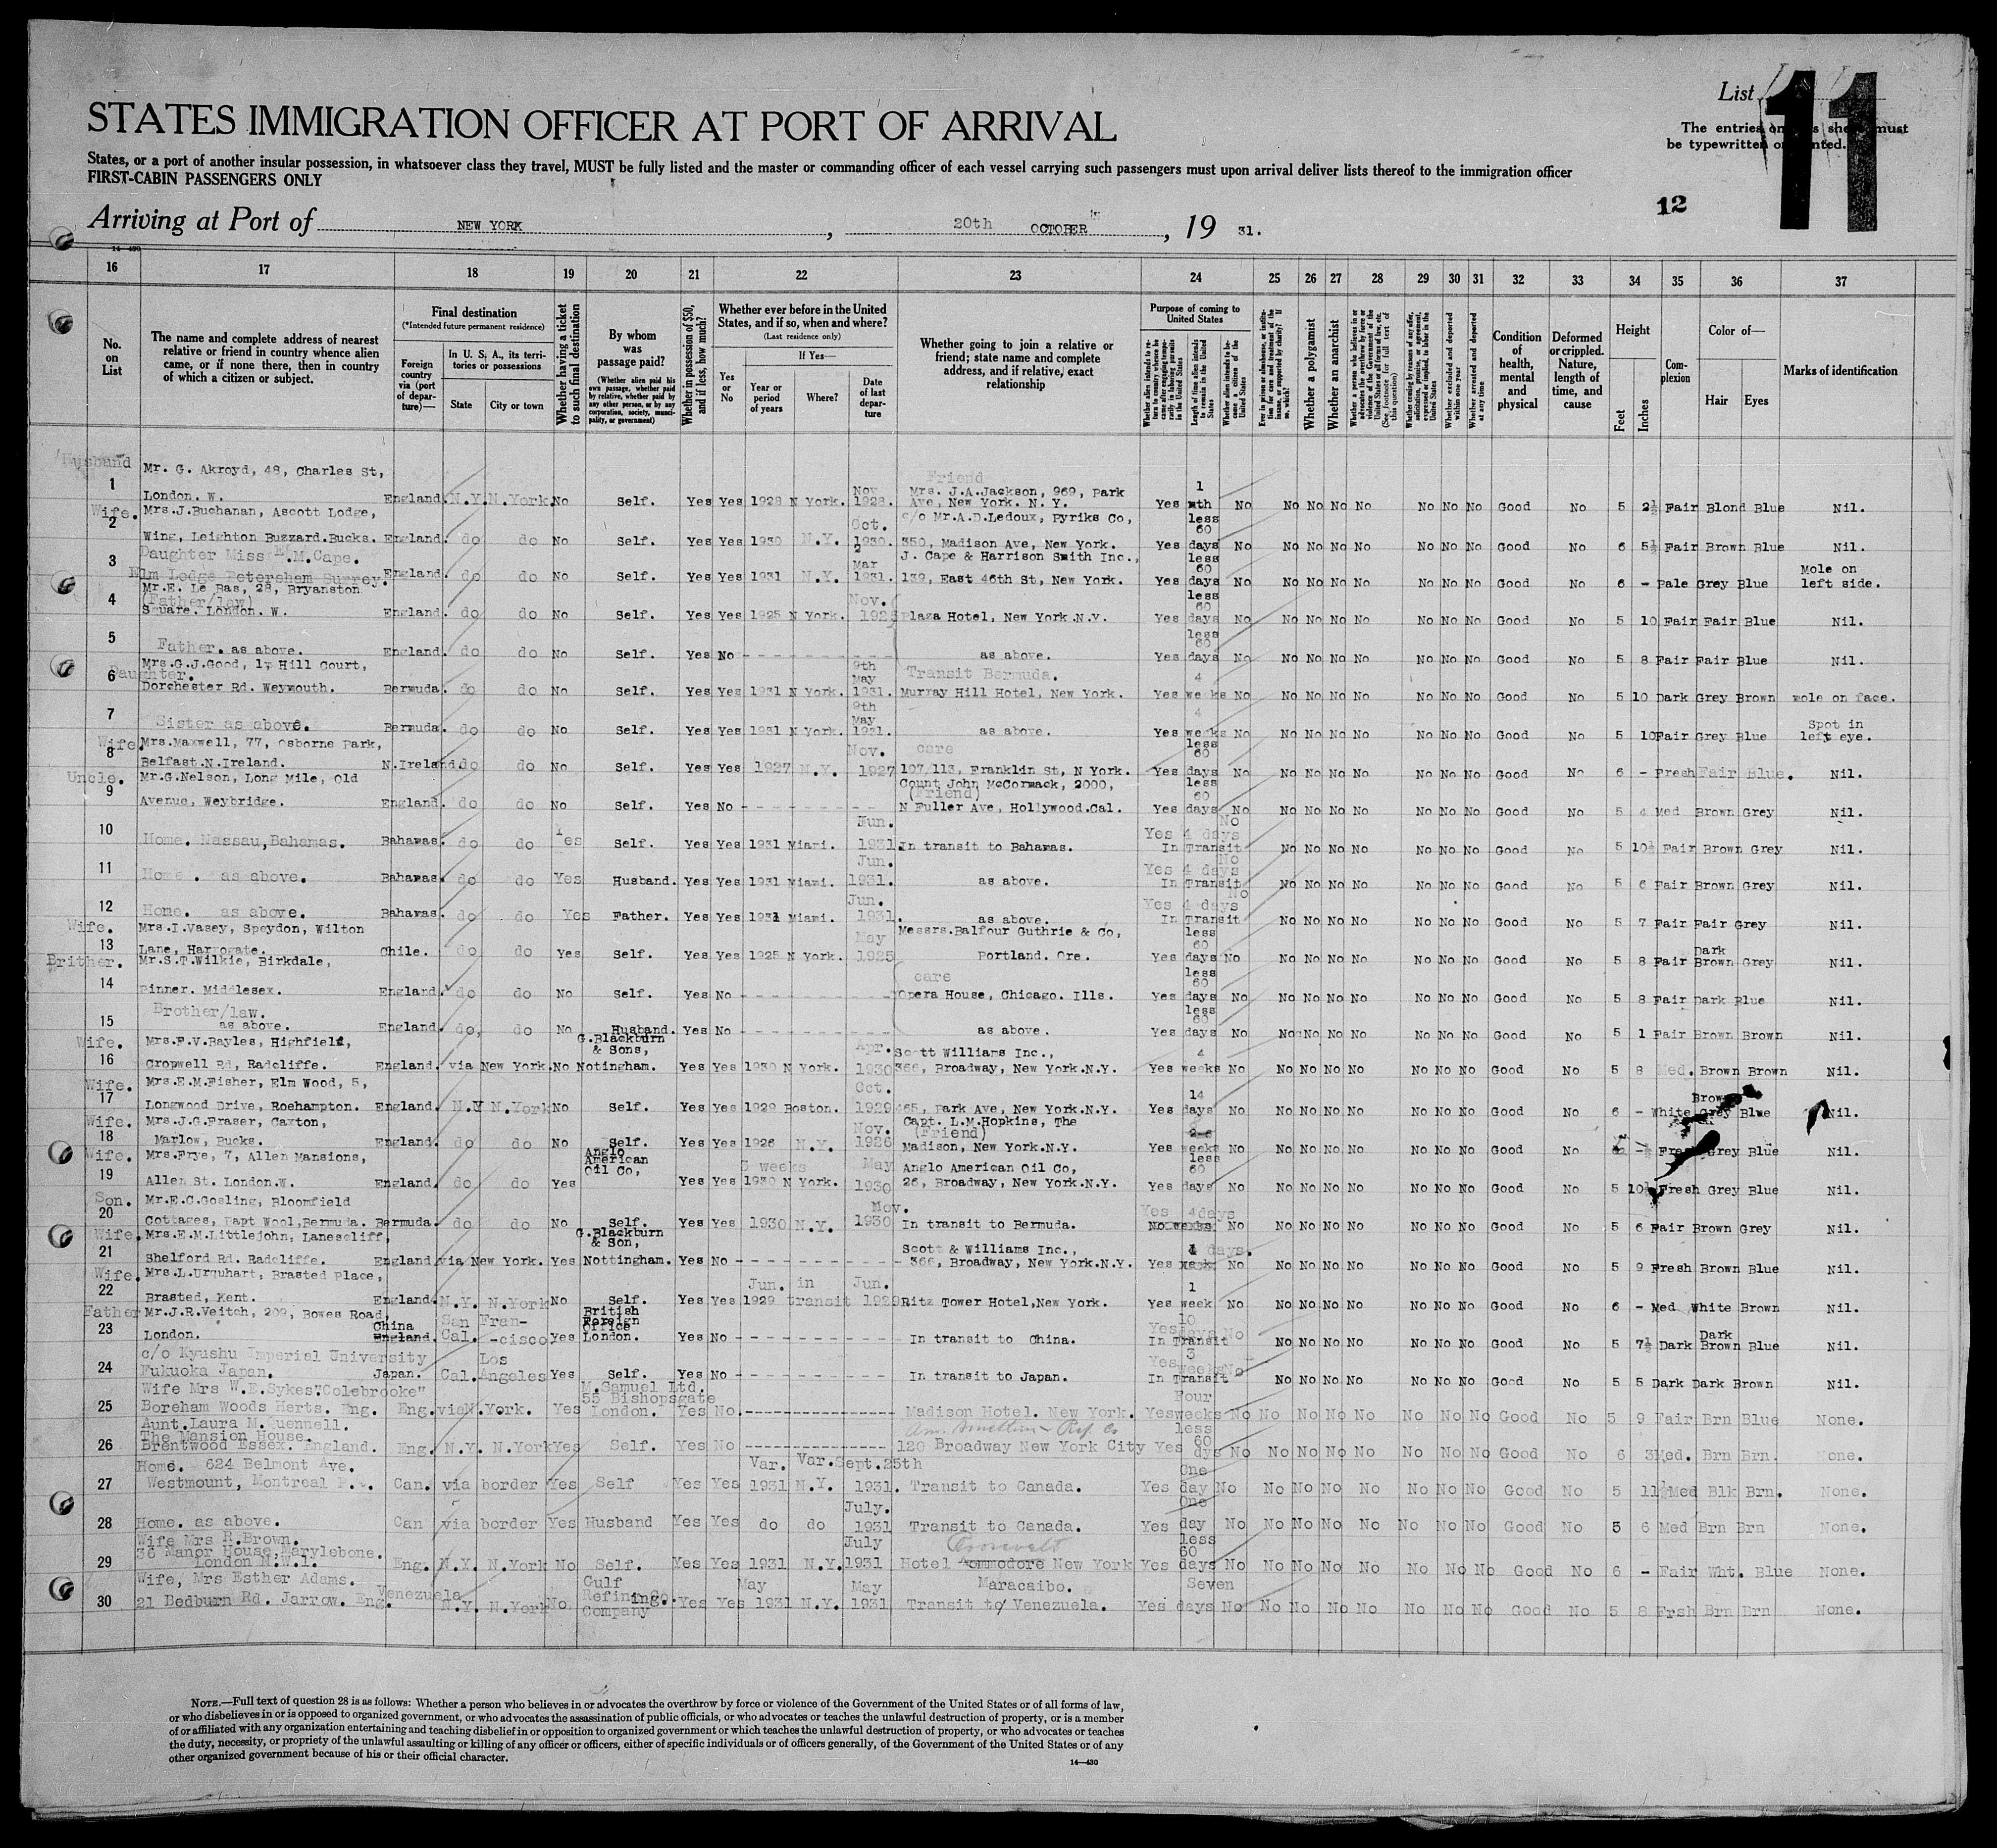 List 11
STATES IMMIGRATION OFFICER AT PORT OF ARRIVAL
The entries on this sheet must
be typewritten or printed.
States, or a port of another insular possession, in whatsoever class they travel, MUST be fully listed and the master or commanding officer of each vessel carrying such passengers must upon arrival deliver lists thereof to the immigration officer
FIRST-CABIN PASSENGERS ONLY
12
Arriving at Port of NEW YORK, 20th OCTOBER, 19 31.
14-430
16 17 18 19 20 21 22 23 24 25 26 27 28 29 30 31 32 33 34 35 36 37
No. on List
The name and complete address of nearest relative or friend in country whence alien came, or if none there, then in country of which a citizen or subject.
Final destination
(*Intended future permanent residence)
Foreign country via (port of departure)—
In U. S. A., its territories or possessions
State City or town
Whether having a ticket to such final destination
By whom was passage paid?
(Whether alien paid his own passage, whether paid by relative, whether paid by any other person, or by any corporation, society, municipality, or government)
Whether in possession of $50, and if less, how much?
Whether ever before in the United States, and if so, when and where?
(Last residence only)
Yes or No
If Yes—
Year or period of years Where? Date of last departure
Whether going to join a relative or friend; state name and complete address, and if relative, exact relationship
Purpose of coming to United States
Whether alien intends to return to country whence he came after engaging temporarily in laboring pursuits in the United States
Length of time alien intends to remain in the United States
Whether alien intends to become a citizen of the United States
Ever in prison or almshouse, or institution for care and treatment of the insane, or supported by charity? If so, which?
Whether a polygamist
Whether an anarchist
Whether a person who believes in or advocates the overthrow by force or violence of the Government of the United States or all forms of law, etc. (See footnote for full text of this question)
Whether coming by reason of any offer, solicitation, promise, or agreement, expressed or implied, to labor in the United States
Whether excluded and deported within one year
Whether arrested and deported at any time
Condition of health, mental and physical
Deformed or crippled. Nature, length of time, and cause
Height
Feet Inches
Complexion
Color of—
Hair Eyes
Marks of identification
Husband Mr. G. Akroyd, 48, Charles St, Friend
1 London. W. England. N.Y. N.York. No Self. Yes Yes 1928 N York. Nov 1928. Mrs. J.A.Jackson, 969, Park Ave, New York. N. Y. Yes 1 mth No No No No No No No No Good No 5 2½ Fair Blond Blue Nil.
Wife. Mrs.J.Buchanan, Ascott Lodge,
2 Wing, Leighton Buzzard.Bucks. England. do do No Self. Yes Yes 1930 N.Y. Oct. 1930. c/o Mr.A.D.Ledoux, Pyriks Co, 350, Madison Ave, New York. Yes less 60 days No No No No No No No No Good No 6 5½ Fair Brown Blue Nil.
3 Daughter Miss M.Cape. Elm Lodge Petersham Surrey. England. do do No Self. Yes Yes 1931 N.Y. 2 Mar 1931. J. Cape & Harrison Smith Inc., 139, East 46th St, New York. Yes less 60 days No No No No No No No No Good No 6 - Pale Grey Blue Mole on left side.
Mr.E. Le Bas, 28, Bryanston
4 (Father/law) Square. London. W. England. do do No Self. Yes Yes 1925 N York. Nov. 1925 Plaza Hotel, New York.N.Y. Yes less 60 days No No No No No No No No Good No 5 10 Fair Fair Blue Nil.
5 Father. as above. England. do do No Self. Yes No as above. Yes less 60 days No No No No No No No No Good No 5 8 Fair Fair Blue Nil.
Mrs.G.J.Good, 17 Hill Court,
6 Daughter. Dorchester Rd. Weymouth. Bermuda. do do No Self. Yes Yes 1931 N York. 9th May 1931. Transit Bermuda. Murray Hill Hotel, New York. Yes 4 weeks No No No No No No No No Good No 5 10 Dark Grey Brown mole on face.
7 Sister as above. Bermuda. do do No Self. Yes Yes 1931 N York. 9th May 1931. as above. Yes 4 weeks No No No No No No No No Good No 5 10 Fair Grey Blue Spot in left eye.
Wife. Mrs.Maxwell, 77, Osborne Park,
8 Belfast.N.Ireland. N.Ireland. do do No Self. Yes Yes 1927 N.Y. Nov. 1927 care 107/113, Franklin St, N York. Yes less 60 days No No No No No No No No Good No 6 - Fresh Fair Blue. Nil.
Uncle. Mr.G.Nelson, Long Mile, Old
9 Avenue, Weybridge. England. do do No Self. Yes No Count John McCormack, 2000, (Friend) N Fuller Ave, Hollywood.Cal. Yes less 60 days No No No No No No No No Good No 5 4 Med Brown Grey Nil.
10 Home. Nassau,Bahamas. Bahamas. do do Yes Self. Yes Yes 1931 Miami. Jun. 1931 In transit to Bahamas. Yes 4 days No In Transit No No No No No No No Good No 5 10½ Fair Brown Grey Nil.
11 Home. as above. Bahamas. do do Yes Husband. Yes Yes 1931 Miami. Jun. 1931. as above. Yes 4 days No In Transit No No No No No No No Good No 5 6 Fair Brown Grey Nil.
12 Home. as above. Bahamas. do do Yes Father. Yes Yes 1931 Miami. Jun. 1931. as above. Yes 4 days No In Transit No No No No No No No Good No 5 7 Fair Fair Grey Nil.
Wife. Mrs.I.Vasey, Speydon, Wilton
13 Lane, Harrogate. Chile. do do Yes Self. Yes Yes 1925 N York. May 1925 Messrs.Balfour Guthrie & Co, Portland. Ore. Yes less 60 days No No No No No No No No Good No 5 8 Fair Dark Brown Grey Nil.
Brither. Mr.S.T.Wilkie, Birkdale,
14 Pinner. Middlesex. England. do do No Self. Yes No care Opera House, Chicago. Ills. Yes less 60 days No No No No No No No No Good No 5 8 Fair Dark Blue Nil.
15 Brother/law. as above. England. do, do No Husband. Yes No as above. Yes less 60 days No No No No No No No No Good No 5 1 Fair Brown Brown Nil.
Wife. Mrs.F.V.Bayles, Highfield,
16 Cropwell Rd, Radcliffe. England. via New York. No G.Blackburn & Sons, Notingham. Yes Yes 1930 N York. Apr. 1930 Scott Williams Inc., 366, Broadway, New York.N.Y. Yes 4 weeks No No No No No No No No Good No 5 8 Med. Brown Brown Nil.
Wife. Mrs.E.M.Fisher, Elm Wood, 5,
17 Longwood Drive, Roehampton. England. N.Y N.York No Self. Yes Yes 1929 Boston. Oct. 1929 465, Park Ave, New York.N.Y. Yes 14 days No No No No No No No No Good No 6 - White Brown Grey Blue Nil.
Wife. Mrs.J.G.Fraser, Caxton,
18 Marlow, Bucks. England. do do No Self. Yes Yes 1926 N.Y. Nov. 1926 Capt. L.M.Hopkins, The (Friend) Madison, New York.N.Y. Yes weeks No No No No No No No No Good No Fresh Grey Blue Nil.
Wife. Mrs.Frye, 7, Allen Mansions,
19 Allen St. London.W. England. do do Yes Anglo American Oil Co, Yes Yes 3 weeks 1930 N York. May 1930 Anglo American Oil Co, 26, Broadway, New York.N.Y. Yes less 60 days No No No No No No No No Good No 5 10½ Fresh Grey Blue Nil.
Son. Mr.E.C.Gosling, Bloomfield
20 Cottages, Papt Wool,Bermuda. Bermuda. do do No Self. Yes Yes 1930 N.Y. Nov. 1930 In transit to Bermuda. Yes 4days No weeks No No No No No No No No Good No 5 6 Fair Brown Grey Nil.
Wife. Mrs.E.M.Littlejohn, Lanescliff,
21 Shelford Rd. Radcliffe. England via New York. Yes G.Blackburn & Son, Nottingham. Yes No Scott & Williams Inc., 366, Broadway, New York.N.Y. Yes days. week No No No No No No No No Good No 5 9 Fresh Brown Blue Nil.
Wife. Mrs.L.Urquhart, Brasted Place,
22 Brasted, Kent. England. N.Y. N.York No Self. Yes Yes Jun. 1929 in transit Jun. 1929 Ritz Tower Hotel,New York. Yes 1 week No No No No No No No No Good No 6 - Med White Brown Nil.
Father Mr.J.R.Veitch, 209, Bowes Road,
23 London. China England. San Fran- Cal. -cisco. Yes British Foreign Office London. Yes No In transit to China. Yes 10 days No In Transit No No No No No No No Good No 5 7½ Dark Dark Brown Blue Nil.
c/o Kyushu Imperial University
24 Fukuoka Japan. Japan. Cal. Los Angeles Yes Self. Yes No In transit to Japan. Yes 3 weeks No In Transit No No No No No No No Good No 5 5 Dark Dark Brown Nil.
Wife Mrs W.E.Sykes."Colebrooke"
25 Boreham Woods Herts. Eng. Eng. via N.York. Yes M.Samuel Ltd. 55 Bishopsgate London. Yes No. Madison Hotel. New York. Yes Four weeks No No No No No No No No Good No 5 9 Fair Brn Blue None.
Aunt.Laura M.Quennell.
The Mansion House.
26 Brentwood Essex. England. Eng. N.Y. N.York Yes Self. Yes No Am. Smelting Ref. Co 120 Broadway New York City Yes less 60 dys No No No No No No No No Good No 6 3 Med. Brn Brn. None.
Home. 624 Belmont Ave.
27 Westmount, Montreal P.Q. Can. via border Yes Self Yes Yes Var. 1931 Var. N.Y. Sept.25th 1931. Transit to Canada. Yes One day No No No No No No No No Good No 5 11½ Med Blk Brn. None.
28 Home. as above. Can via border Yes Husband Yes Yes do do July. 1931 Transit to Canada. Yes One day No No No No No No No No Good No 5 6 Med Brn Brn None.
Wife Mrs R.Brown.
36 Manor House,Marylebone.
29 London N.W.1. Eng. N.Y. N.York No Self. Yes Yes 1931 N.Y. July 1931 Roosevelt Hotel Commodore New York Yes less 60 days No No No No No No No No Good No 6 - Fair Wht. Blue None.
Wife, Mrs Esther Adams.
30 21 Bedburn Rd. Jarrow. Eng. Venezuela N.Y. N.York No. Gulf Refining Co. Company Yes Yes May 1931 N.Y. May 1931 Maracaibo. Transit to Venezuela. Yes Seven days No No No No No No No No Good No 5 8 Frsh Brn Brn None.
NOTE.—Full text of question 28 is as follows: Whether a person who believes in or advocates the overthrow by force or violence of the Government of the United States or of all forms of law,
or who disbelieves in or is opposed to organized government, or who advocates the assassination of public officials, or who advocates or teaches the unlawful destruction of property, or is a member
of or affiliated with any organization entertaining and teaching disbelief in or opposition to organized government or which teaches the unlawful destruction of property, or who advocates or teaches
the duty, necessity, or propriety of the unlawful assaulting or killing of any officer or officers, either of specific individuals or of officers generally, of the Government of the United States or of any
other organized government because of his or their official character.
14—430